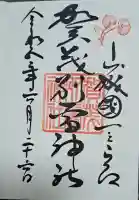 山城國一之宮
賀茂別雷神社
令和八年二月二十六日